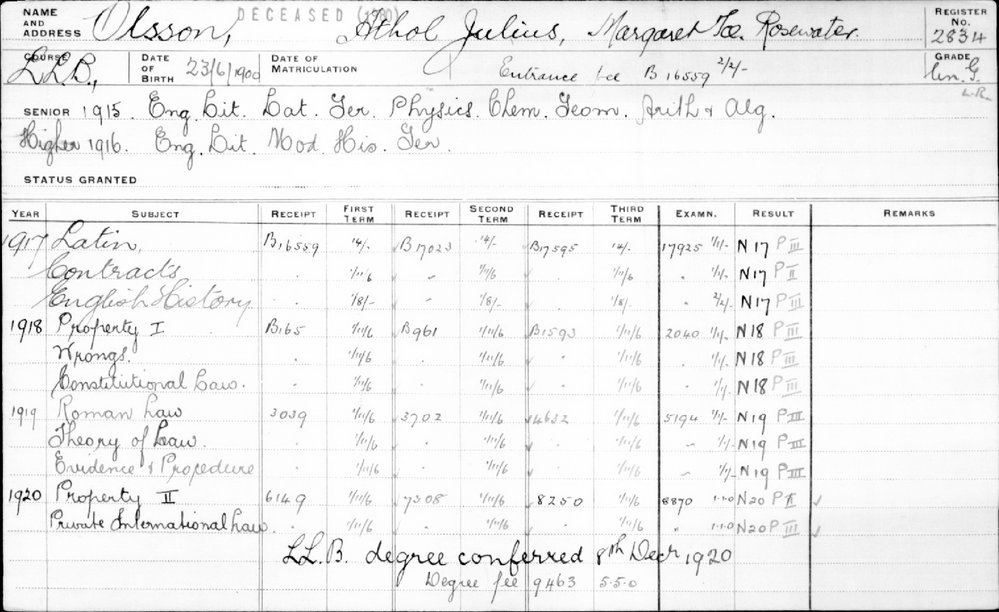 NAME AND ADDRESS Olsson, DECEASED Athol Julius, Margaret Tce. Rosewater. REGISTER No. 2834
COURSE LL.B., DATE OF BIRTH 23/6/1900 DATE OF MATRICULATION Entrance fee B16559 2/2/- GRADE Un. G.
L.R.
SENIOR 1915. Eng. Lit. Lat. Ger. Physics. Chem. Geom. Arith & Alg.
Higher 1916. Eng. Lit. Mod. His. Ger.
STATUS GRANTED
YEAR SUBJECT RECEIPT FIRST TERM RECEIPT SECOND TERM RECEIPT THIRD TERM EXAMN. RESULT REMARKS
1917 Latin. B16559 14/- B17023 14/- B17595 14/- 17925 1/1/- N17 P III
Contracts 1/11/6 " 1/11/6 1/11/6 " 1/1/- N17 P II
English History 1/8/- " 1/8/- 1/8/- " 2/2/- N17 P III
1918 Property I B165 1/11/6 B961 1/11/6 B1593 1/11/6 2040 1/1/- N18 P III
Wrongs. 1/11/6 1/11/6 1/11/6 1/1/- N18 P III
Constitutional Law. 1/11/6 1/11/6 1/11/6 1/1/- N18 P III
1919 Roman Law 3039 1/11/6 3702 1/11/6 4632 1/11/6 5194 1/1/- N19 P III
Theory of Law. 1/11/6 1/11/6 1/11/6 " 1/1/- N19 P III
Evidence & Procedure 1/11/6 1/11/6 1/11/6 " 1/1/- N19 P III
1920 Property II 6149 1/11/6 7308 1/11/6 8250 1/11/6 8870 1.1.0 N20 P II ✓
Private International Law. 1/11/6 1/11/6 1/11/6 " 1.1.0 N20 P III ✓
LL.B. degree conferred 8th Decr 1920
Degree fee 9463 5.5.0